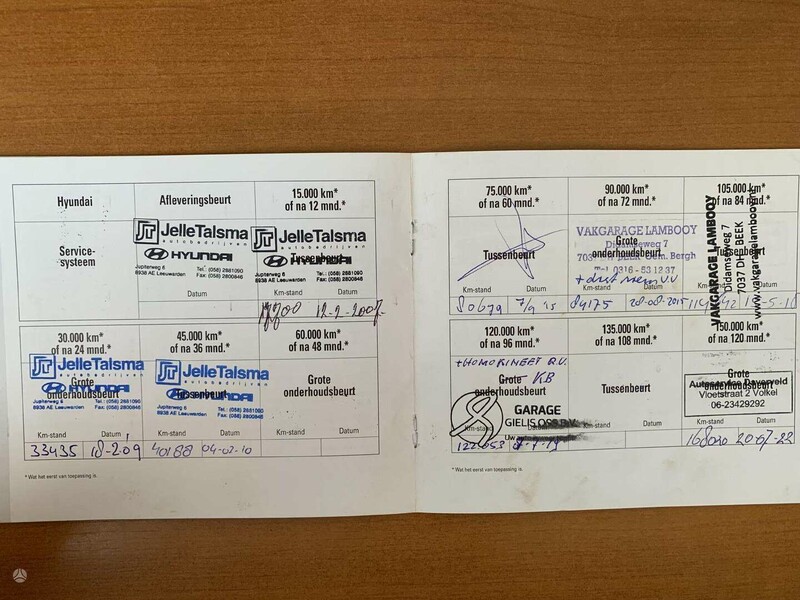 Hyundai
Service-
systeem
Afleveringsbeurt
JelleTalsma
autobedrijven
HYUNDAI
Jupiterweg 6
8938 AE Leeuwarden
Tel.: (058) 2881090
Fax: (058) 2800846
Datum
15.000 km*
of na 12 mnd.*
JelleTalsma
autobedrijven
Tussenbeurt
HYUNDAI
Jupiterweg 6
8938 AE Leeuwarden
Tel.: (058) 2881090
Fax: (058) 2800846
Km-stand Datum
12-2-2007
30.000 km*
of na 24 mnd.*
JelleTalsma
autobedrijven
Grote
HYUNDAI
onderhoudsbeurt
Jupiterweg 6
8938 AE Leeuwarden
Tel.: (058) 2881090
Fax: (058) 2800846
Km-stand Datum
33435 18-209
45.000 km*
of na 36 mnd.*
JelleTalsma
autobedrijven
Tussenbeurt
HYUNDAI
Jupiterweg 6
8938 AE Leeuwarden
Tel.: (058) 2881090
Fax: (058) 2800846
Km-stand Datum
40188 04-02-10
60.000 km*
of na 48 mnd.*
Grote
onderhoudsbeurt
Km-stand Datum
* Wat het eerst van toepassing is.
75.000 km*
of na 60 mnd.*
Tussenbeurt
Km-stand Datum
80679 7/9 '15
90.000 km*
of na 72 mnd.*
VAKGARAGE LAMBOOY
Didamseweg 7
Grote
onderhoudsbeurt
7037 DH BEEK Gem. Bergh
Tel. 0316 - 53 12 37
Km-stand Datum
84175 20-08-2015
105.000 km*
of na 84 mnd.*
VAKGARAGE LAMBOOY
Didamseweg 7
7037 DH BEEK
Km-stand Datum
120.000 km*
of na 96 mnd.*
+ HOMOKINEET R.V.
Grote KB
onderhoudsbeurt
GARAGE
GIELIS OSS B.V.
Uw
Km-stand Datum
135.000 km*
of na 108 mnd.*
Tussenbeurt
Km-stand Datum
150.000 km*
of na 120 mnd.*
Grote
onderhoudsbeurt
Vloetstraat 2 Volkel
06-23429292
Km-stand Datum
20-07-22
* Wat het eerst van toepassing is.